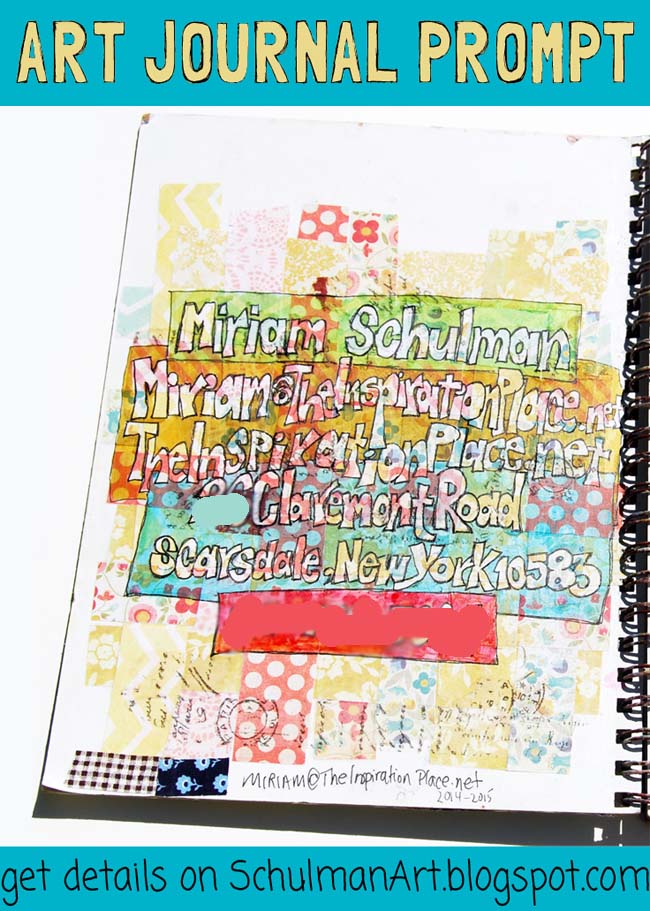 ART JOURNAL PROMPT
Miriam Schulman
Miriam@TheInspirationPlace.net
TheInspirationPlace.net
Claremont Road
Scarsdale, New York 10583
MIRIAM@TheInspiration Place.net
2014-2015
get details on SchulmanArt.blogspot.com